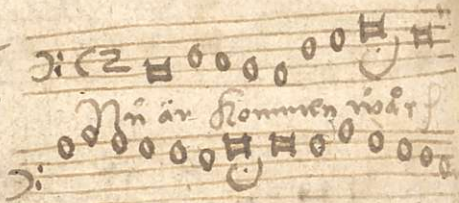 Nu är kommen wår